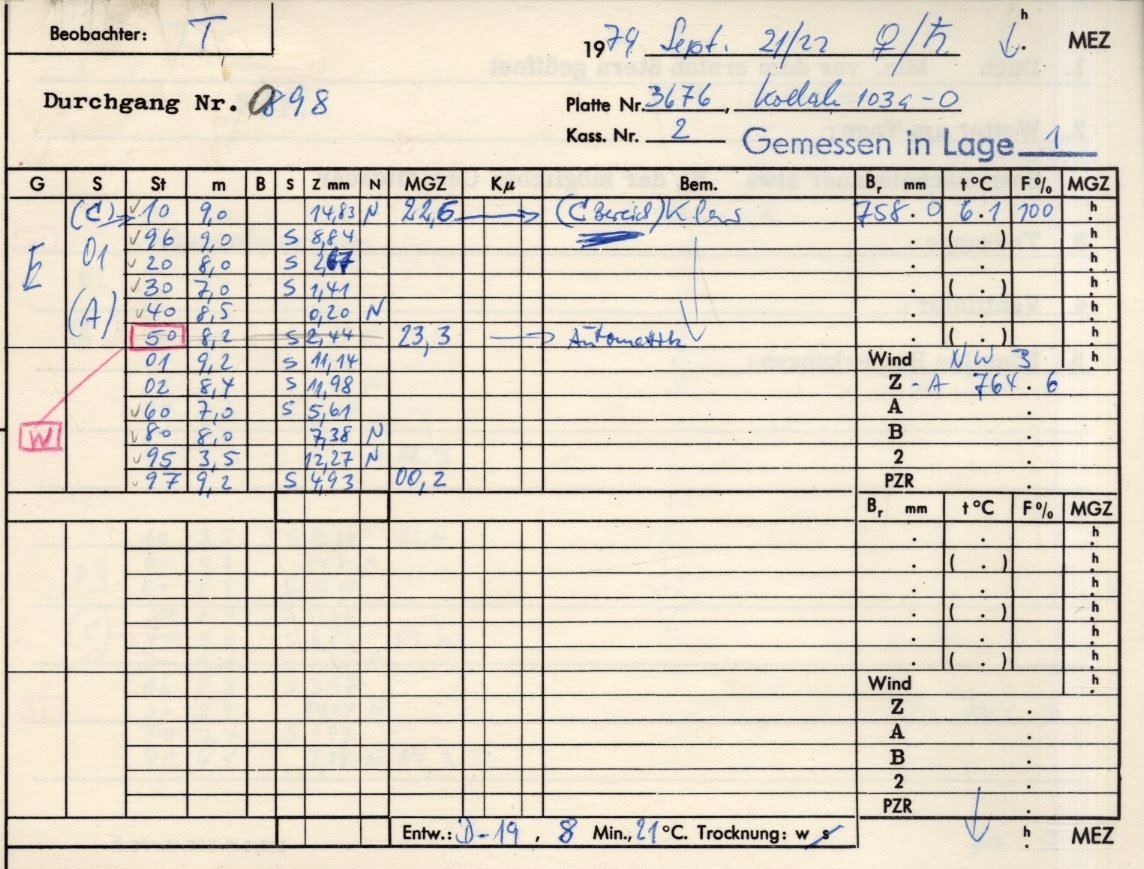 Beobachter: T
1979 Sept. 21/22 ♀/♄ h MEZ
Durchgang Nr. 0898
Platte Nr. 3676, Kodak 103a-O
Kass. Nr. 2
Gemessen in Lage 1
G S St m B S Z mm N MGZ Kμ Bem. Br mm t°C F% MGZ
(C) → ✓10 9,0 14,83 N 22,6 → (C Bereich) Klaus 758.0 6.1 100 h
E 01 ✓96 9,0 S 8,84 . ( . ) h
✓20 8,0 S 2,67 . . h
✓30 7,0 S 1,41 . ( . ) h
(A) ✓40 8,5 0,20 N . . h
50 8,2 S 2,44 23,3 → Automatik . ( . ) h
01 9,2 S 11,14 Wind NW 3 h
02 8,4 S 11,98 Z - A 764.6
✓60 7,0 S 5,61 A .
W ✓80 8,0 7,38 N B .
✓95 3,5 12,27 N 2 .
✓97 9,2 S 4,93 00,2 PZR .
Br mm t°C F% MGZ
. . h
. ( . ) h
. . h
. ( . ) h
. . h
. ( . ) h
Wind h
Z .
A .
B .
2 .
PZR .
Entw.: D-19, 8 Min., 21 °C. Trocknung: w s h MEZ